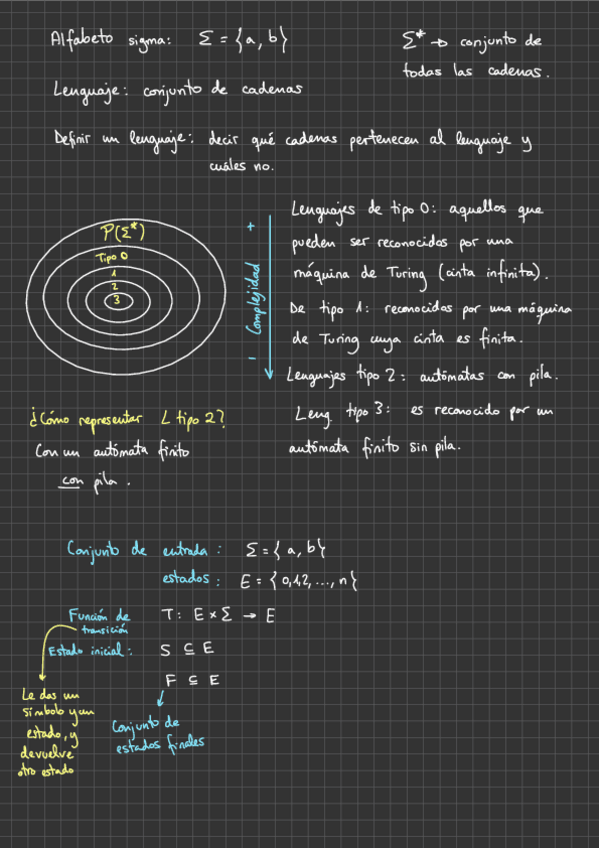 Alfabeto sigma: Σ = {a, b}
Σ* → conjunto de
todas las cadenas.
Lenguaje: conjunto de cadenas
Definir un lenguaje: decir qué cadenas pertenecen al lenguaje y
cuáles no.
P(Σ*)
Tipo 0
1
2
3
+
Complejidad
-
Lenguajes de tipo 0: aquellos que
pueden ser reconocidos por una
máquina de Turing (cinta infinita).
De tipo 1: reconocidos por una máquina
de Turing cuya cinta es finita.
Lenguajes tipo 2: autómatas con pila.
Leng. tipo 3: es reconocido por un
autómata finito sin pila.
¿Cómo representar L tipo 2?
Con un autómata finito
con pila.
Conjunto de entrada: Σ = {a, b}
estados: E = {0,1,2, ..., n}
Función de transición T: E × Σ → E
Estado inicial: S ⊆ E
F ⊆ E
Le das un
símbolo y un
estado, y
devuelve
otro estado
Conjunto de
estados finales